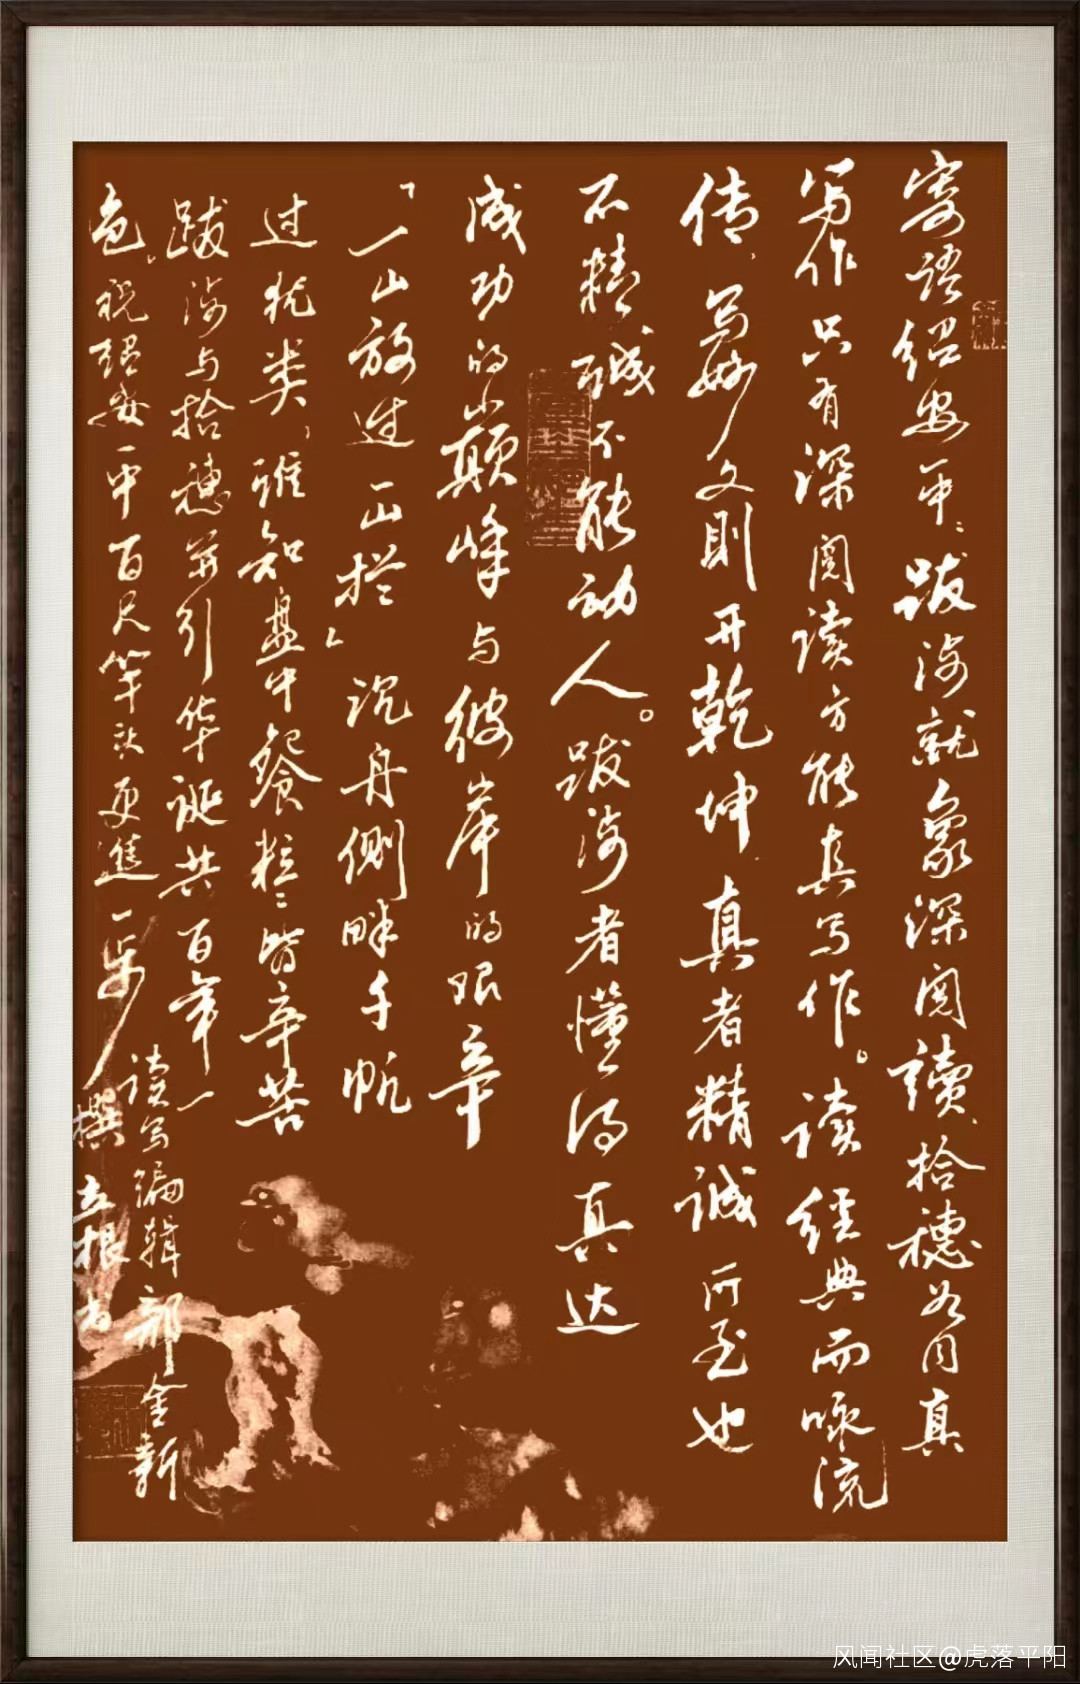 寄语绍安平：跋涉就象深阅读，拾穗如同真
写作。只有深阅读方能真写作。读经典而咏流
传，写妙文则开乾坤。真者精诚所至也
不精诚不能动人。跋涉者懂得真达
成功的山巅峰与彼岸的艰辛
「一山放过一山拦」沉舟侧畔千帆
过犹类，谁知盘中餐粒粒皆辛苦
跋涉与拾穗并引华诞共百年一
色。祝绍安平百尺竿头更进一步
读写编辑部金新
撰 立根书
风闻社区@虎落平阳